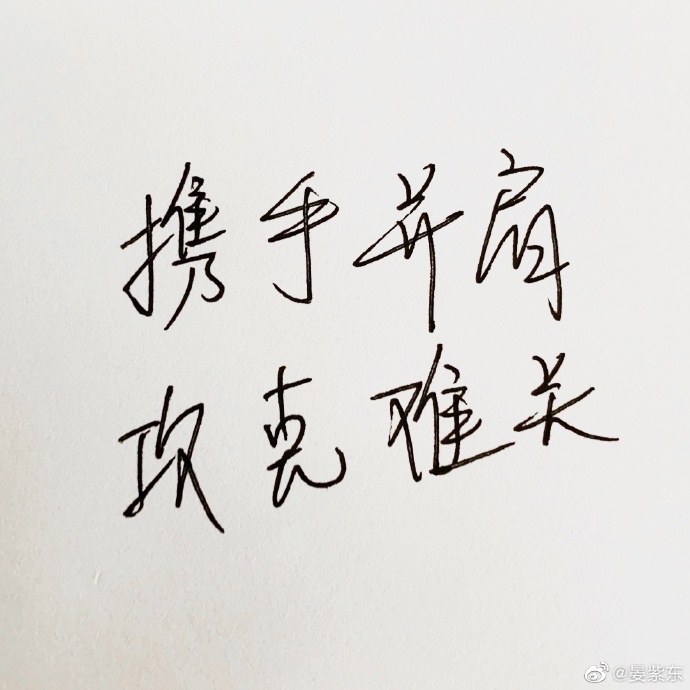 携手并肩
攻克难关
@晏紫东